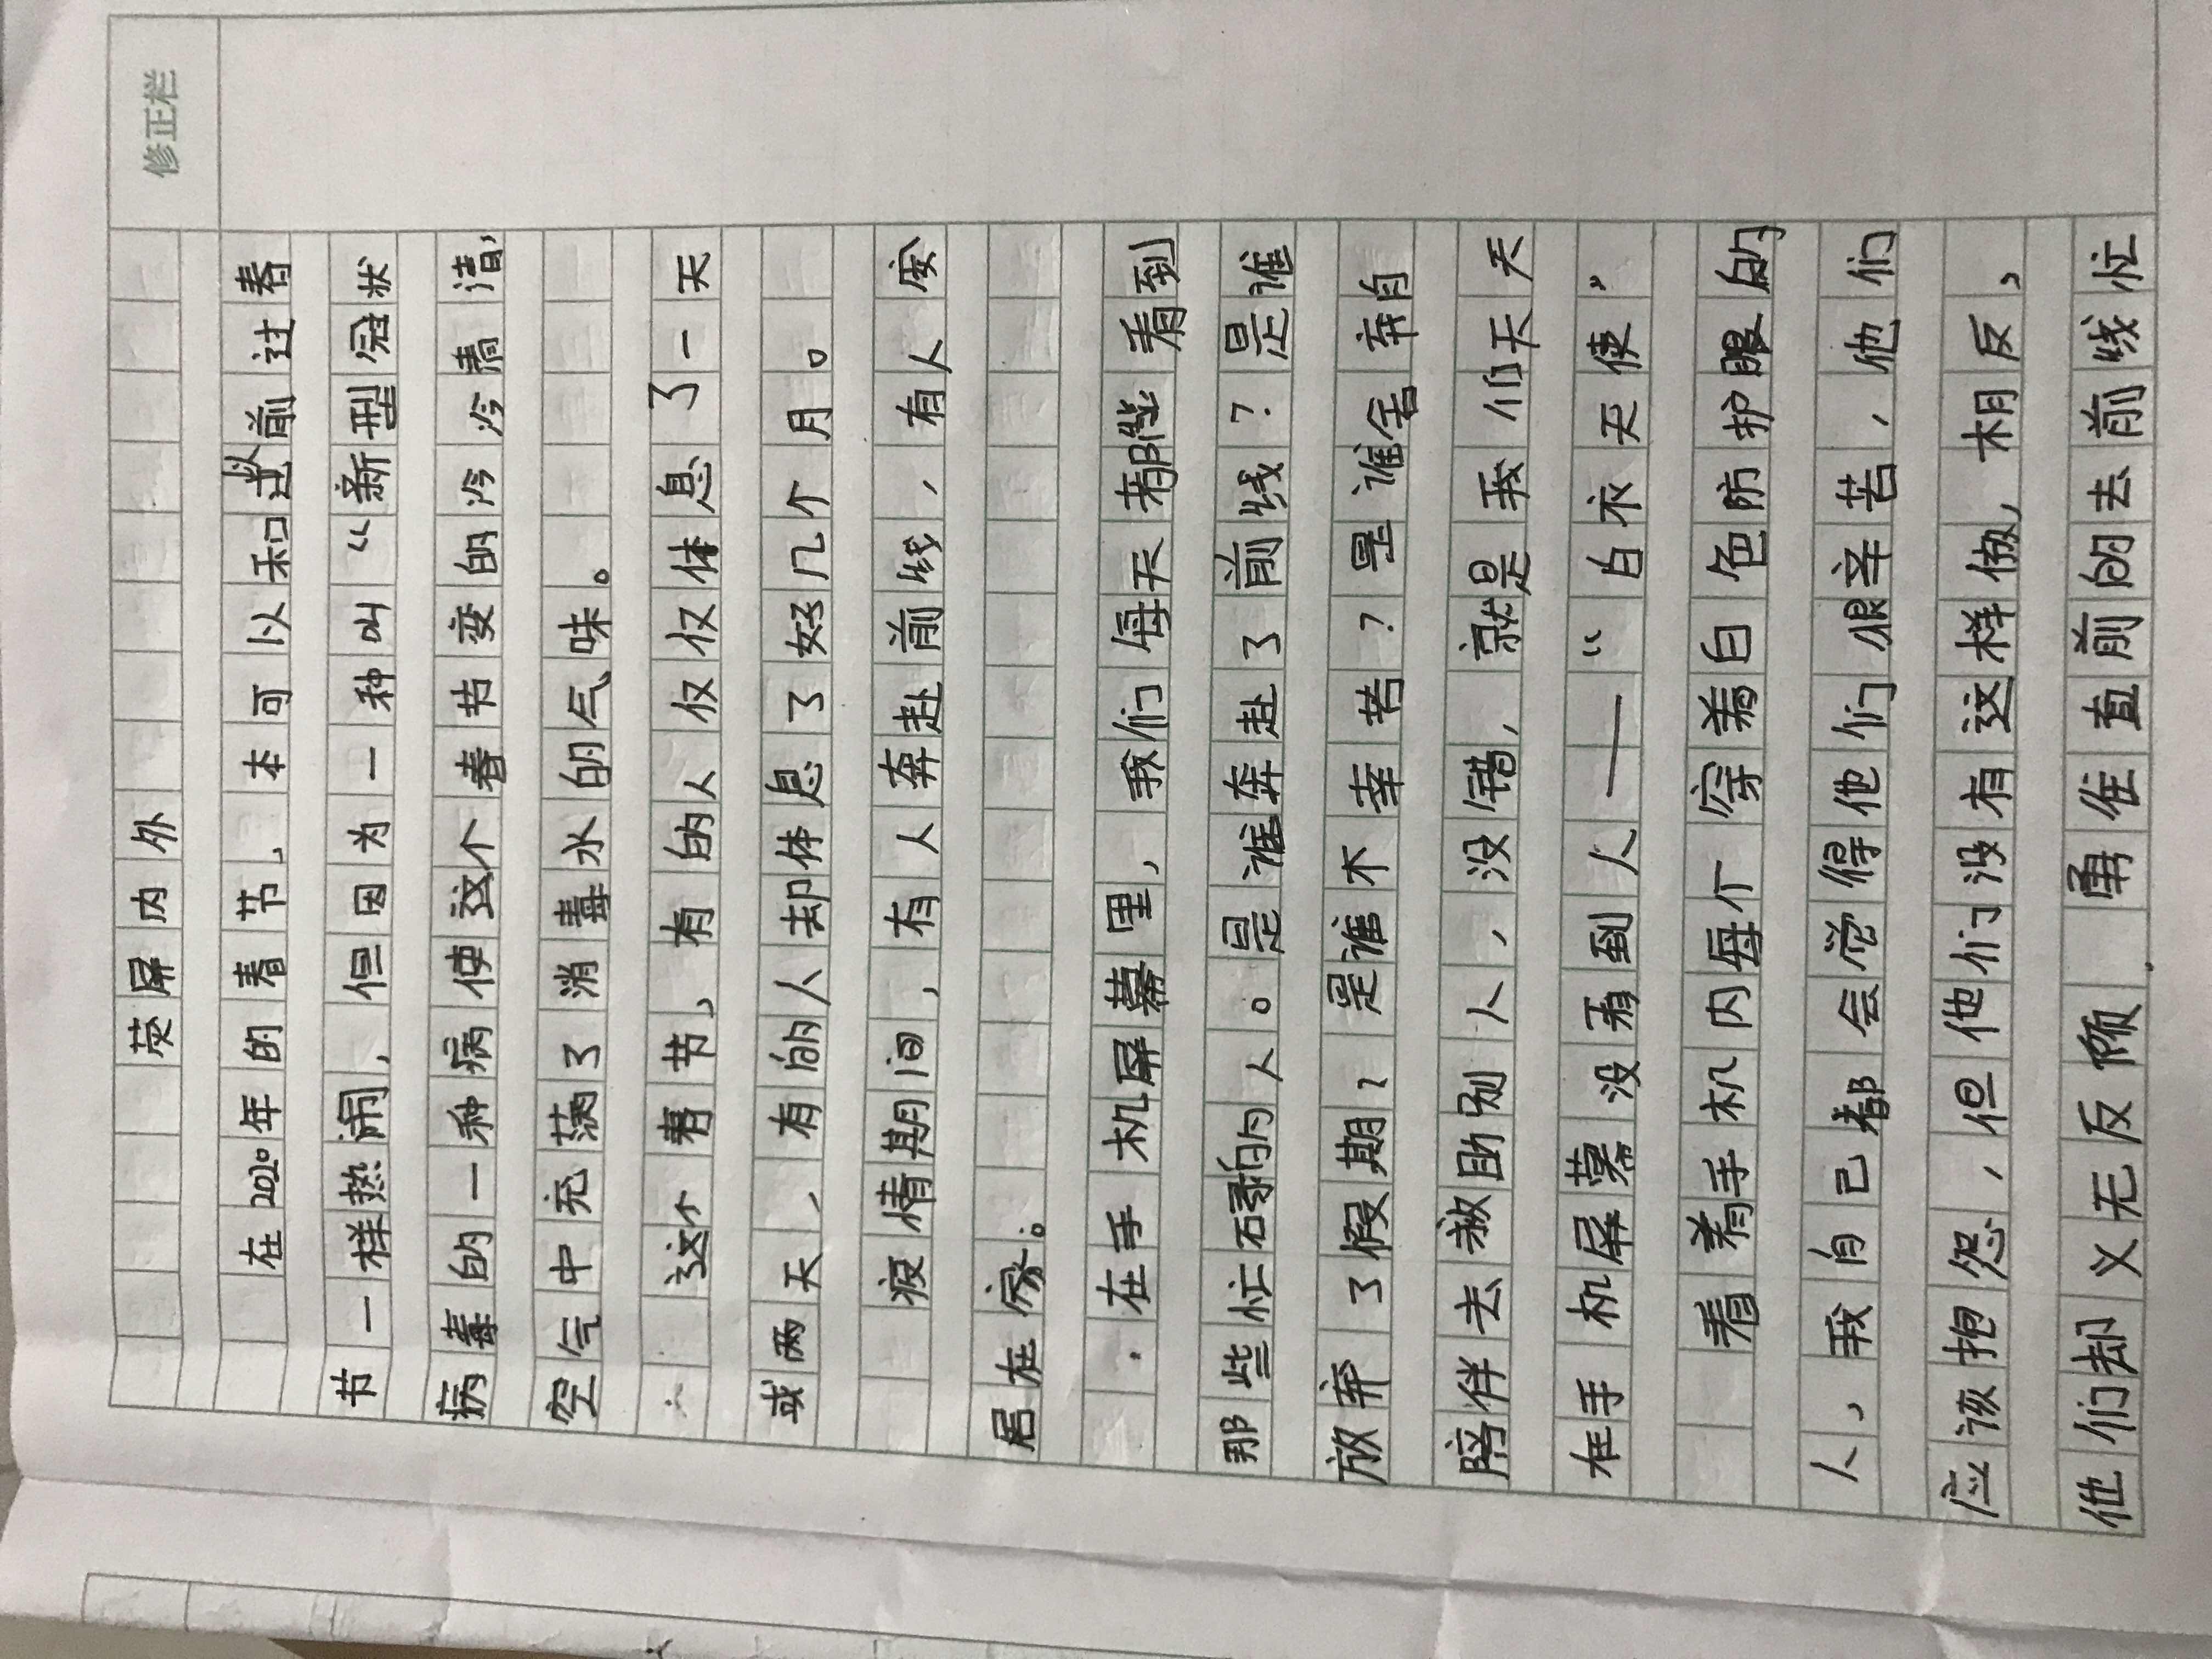 修正栏
荧屏内外
在2020年的春节,本可以和以前过春
节一样热闹,但因为一种叫“新型冠状
病毒的一种病使这个春节变的冷冷清清,
空气中充满了消毒水的气味。
这个春节,有的人仅仅休息了一天
或两天,有的人却休息了好几个月。
疫情期间,有人奔赴前线,有人安
居在家。
在手机屏幕里,我们每天都能看到
那些忙碌的人。是谁奔赴了前线?是谁
放弃了假期?是谁不幸苦?是谁舍弃自
陪伴去救助别人,没错,就是我们天天
在手机屏幕没看到人——“白衣天使”
看着手机内每个穿着白色防护服的
人,我自己都会觉得他们很辛苦,他们
应该抱怨,但他们没有这样做,相反,
他们却义无反顾勇往直前的去前线忙